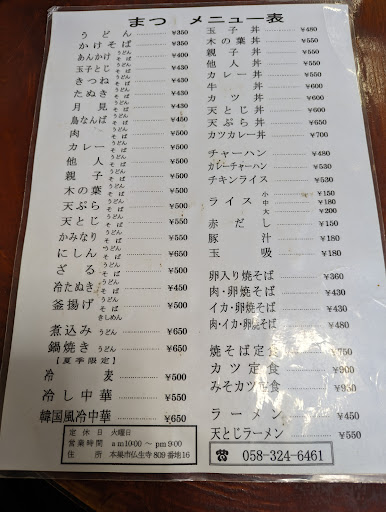 まつ メニュー表
うどん ¥350
かけそば うどん ¥350
あんかけ うどん そば ¥400
玉子とじ うどん そば ¥430
きつね うどん そば ¥400
たぬき うどん そば ¥430
月見 うどん そば ¥400
鳥なんば うどん そば ¥450
肉 うどん そば ¥500
カレー うどん そば ¥500
他人 うどん そば ¥500
親子 うどん そば ¥500
木の葉 うどん そば ¥500
天ぷら うどん そば ¥500
天とじ うどん そば ¥550
かみなり うどん そば ¥550
にしん うどん そば ¥650
ざる うどん そば ¥500
冷たぬき うどん そば ¥450
釜揚げ うどん そば きしめん ¥500
煮込み うどん ¥650
鍋焼き うどん ¥650
【夏季限定】
冷麦 ¥500
冷し中華 ¥550
韓国風冷中華 ¥650
定休日 火曜日
営業時間 am10:00 ～ pm9:00
住所 本巣市仏生寺809番地16
玉子丼 ¥480
木の葉丼 ¥550
親子丼 ¥550
他人丼 ¥550
カレー丼 ¥550
牛丼 ¥600
カツ丼 ¥600
天とじ丼 ¥550
天ぷら丼 ¥550
カツカレー丼 ¥700
チャーハン ¥480
カレーチャーハン ¥530
チキンライス ¥530
ライス 小 ¥150
中 ¥180
大 ¥200
赤だし ¥150
豚汁 ¥180
玉吸 ¥180
卵入り焼そば ¥360
肉・卵焼そば ¥430
イカ・卵焼そば ¥430
肉・イカ・卵焼そば ¥480
焼そば定食 ¥750
カツ定食 ¥900
みそカツ定食 ¥950
ラーメン ¥450
天とじラーメン ¥550
☎ 058-324-6461